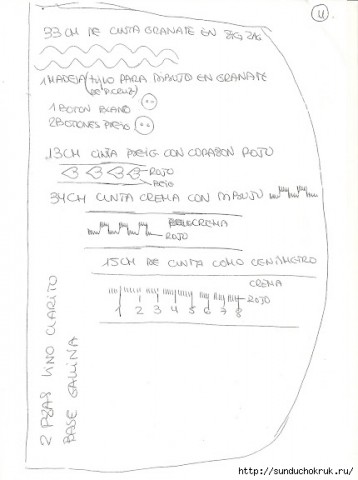 4
33 CM DE CINTA GRANATE EN ZIG ZAG
1 MADEJA (HILO PARA DIBUJO EN GRANATE
DE P. CRUZ)
1 BOTON BLANCO
2 BOTONES BEIG
13CM CINTA BEIG CON CORAZON ROJO
ROJO
BEIG
34CM CINTA CREMA CON DIBUJO
CREMA
ROJO
15CM DE CINTA COMO CENTIMETRO
CREMA
ROJO
1 2 3 4 5 6 7 8
2 PZAS LINO CLARITO
BASE GALLINA
http://sunduchokruk.ru/